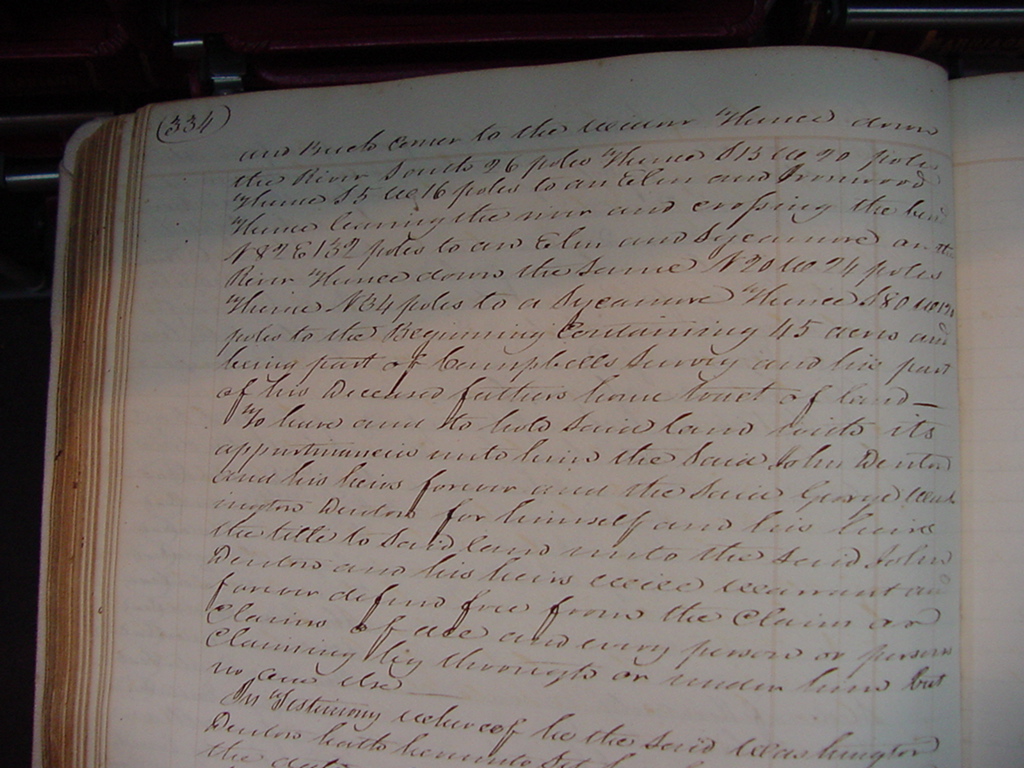 (334)
and Buck corner to the Widow Thence down
the River South 26 poles Thence S 13 W 20 poles
Thence S 5 W 16 poles to an Elm and Ironwood
Thence leaving the river and crossing the bend
N 82 E 132 poles to an Elm and Sycamore on the
River Thence down the same N 20 W 24 poles
Thence N 34 poles to a Sycamore Thence S 80 W
poles to the Beginning Containing 45 acres and
being part of Campbells Survey and his part
of his Deceased fathers home tract of land —
To have and to hold said land with its
appurtinancies unto him the said John Denton
and his heirs forever and the said George Wash
ington Denton for himself and his heirs
the title to said land unto the said John
Denton and his heirs will warrant and
forever defend free from the Claim or
Claims of all and every person or persons
Claiming by through or under him but
no one else
In Testimony whereof he the said Washington
Denton hath hereunto set his
the